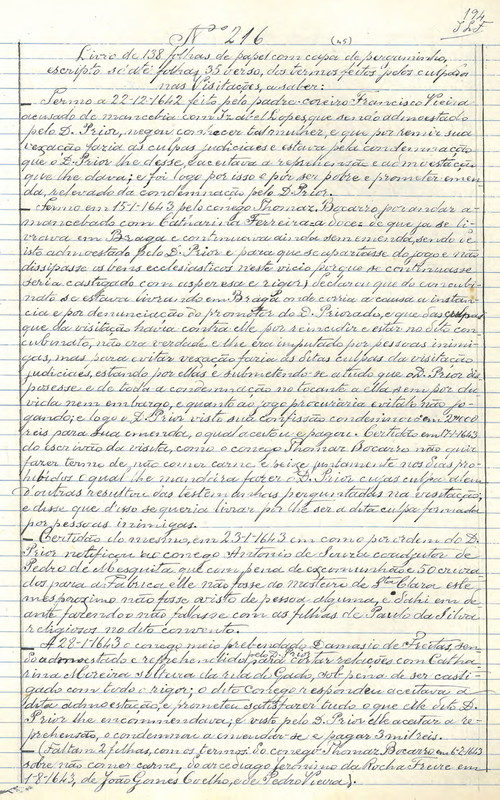 194
Nº 216 (45)
Livro de 138 folhas de papel com capa de pergaminho,
escripto só até folhas 35 verso, dos termos feitos pelos culpados
nas Visitações, a saber:
— Termo a 22-12-1642 feito pelo padre coreiro Francisco Vieira
acusado de mancebia com Izabel Lopes que sendo admoestado
pelo D. Prior, negou conhecer tal mulher, e que por remir sua
vexação fazia as culpas judiciaes e estava pela condemnação
que o D. Prior lhe désse, e aceitava a reprehensão e admoestação
que lhe dava; e foi logo por isso e por ser pobre e prometer emen-
da, relevado da condemnação pelo D. Prior.
— Termo em 15-1-1643 pelo conego Thomaz Bocarro, por andar a-
mancebado com Catharina Ferreira a doce de que já se li-
vrava em Braga e continuava ainda sem emenda, sendo por
isto admoestado pelo D. Prior e para que se apartasse do jogo e não
dissipasse os bens ecclesiasticos neste vicio porque se continuasse
seria castigado com aspereza e rigor, declarou que do concubi-
nato se estava livrando em Braga onde corria a causa a instan-
cia e por denunciação do promotor do D. Priorado, e que das culpas
que da visitação havia contra elle por reincidir e estar no dito con-
cubinato, não era verdade e lhe era imputado por pessoas inimi-
gas, mas para evitar vexação fazia as ditas culpas da visitação
judiciaes, estando por ellas e submetendo-se a tudo que o D. Prior dis-
posesse e de toda a condemnação no tocante a ella sem por du-
vida nem embargo, e quanto ao jogo procuraria evital-o não jo-
gando; e logo o D. Prior visto sua confissão condemnou em 2$000
reis para sua emenda, o qual aceitou e pagou. Certidão em 17-1-1643
do escrivão da visita, como o conego Thomaz Bocarro não quiz
fazer termo de, não comer carne e peixe juntamente nos dias pro-
hibidos o qual lhe mandára fazer o D. Prior cujas culpas além
d'outras resultou das testemunhas perguntadas na visitação;
e disse que d'isso se queria livrar por lhe ser a dita culpa formada
por pessoas inimigas.
— Certidão do mesmo, em 23-1-1643 em como por ordem do D.
Prior notificou ao conego Antonio de Souza coadjutor de
Pedro de Mesquita que com pena de excomunhão e 50 cruza-
dos para a Fabrica elle não fosse ao mosteiro de Stª Clara este
mes proximo não fosse a visto de pessoa alguma, e d'ahi em de-
ante fazendo-o não fallasse com as filhas de Paulo da Silva
religiosas no dito convento.
— A 28-1-1643 o conego meio prebendado Damasio de Freitas sen-
do admoestado e reprehendido pelo D. Prior para cortar relações com Catha-
rina Moreira solteira da rua do Gado, sob pena de ser casti-
gado com todo o rigor; o dito conego respondeu aceitava a
dita admoestação, e prometeu satisfazer tudo o que elle dito D.
Prior lhe encommendava; e visto pelo D. Prior elle aceitar a re-
prehensão, o condemnou a emendar-se e pagar 3 mil reis.
— (Faltam 2 folhas, com os termos: do conego Thomaz Bocarro em 6-2-1643
sobre não comer carne, do arcediago Jeronimo da Rocha Freire em
1-8-1643, de João Gomes Coelho, e de Pedro Vieira).